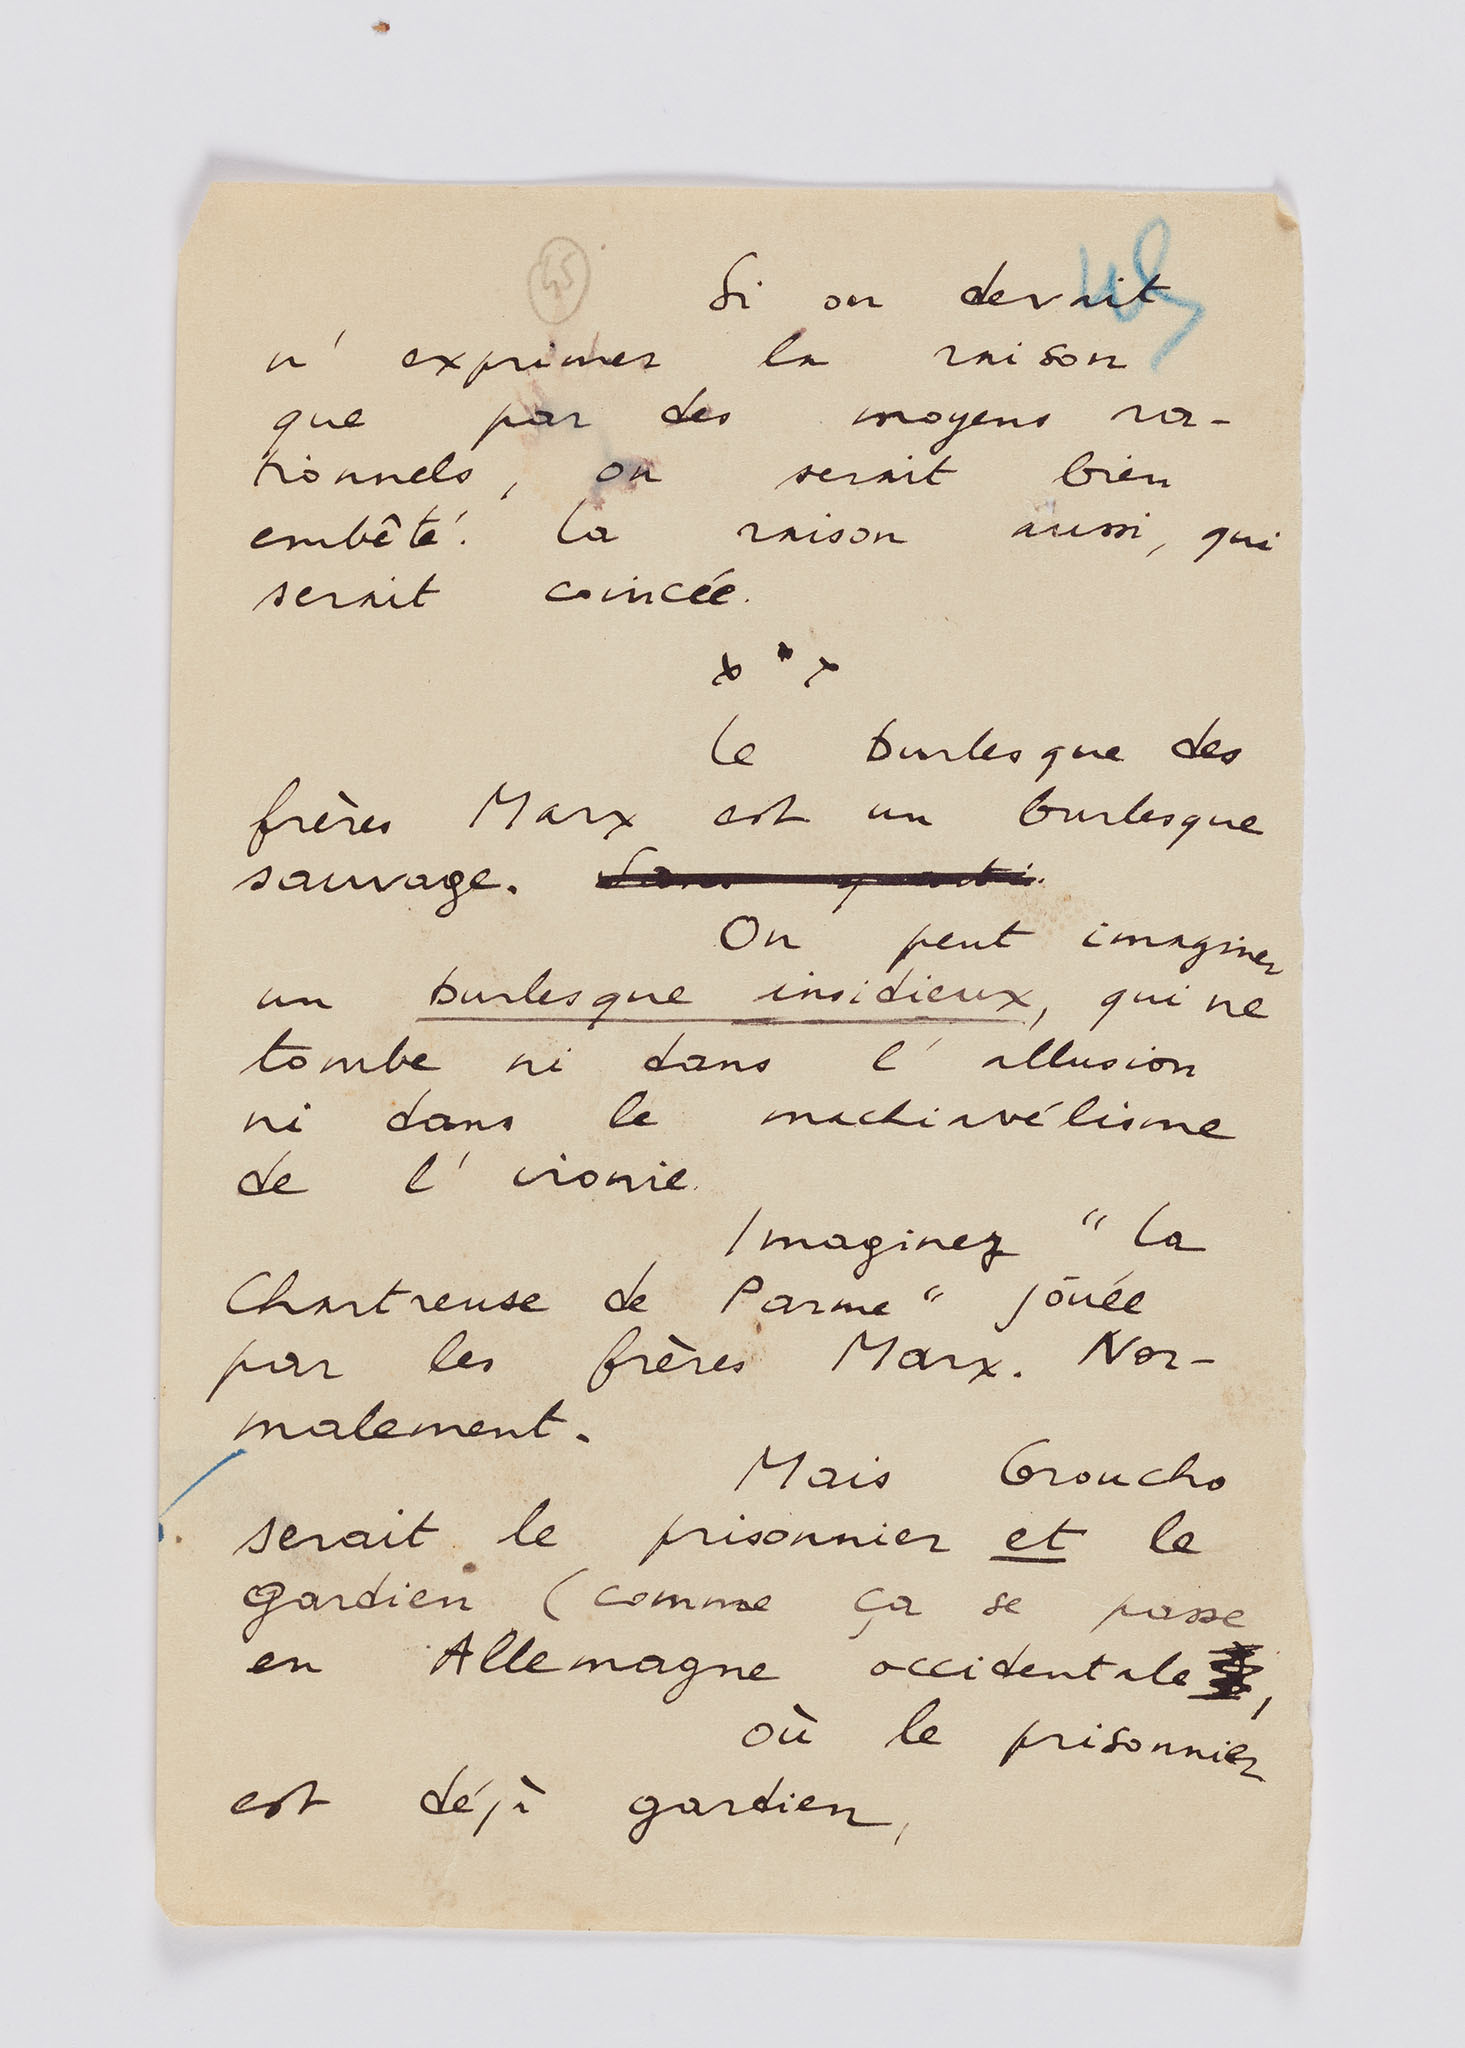 45
Si on devait
n' exprimer la raison
que par des moyens ra-
tionnels, on serait bien
embêté. La raison aussi, qui
serait coincée.
x * x
Le burlesque des
frères Marx est un burlesque
sauvage.
On peut imaginer
un burlesque insidieux, qui ne
tombe ni dans l' allusion
ni dans le machiavélisme
de l' ironie.
Imaginez "La
Chartreuse de Parme" jouée
par les frères Marx. Nor-
malement.
Mais Groucho
serait le prisonnier et le
gardien (comme ça se passe
en Allemagne occidentale,
où le prisonnier
est déjà gardien,